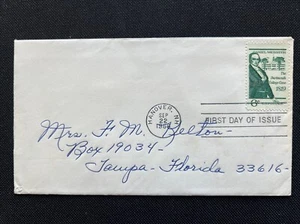 The
Dartmouth
College Case
1819
6c
HANOVER, NH
SEP
22
1969
FIRST DAY OF ISSUE
Mrs. F. M. Belton-
Box 19034-
Tampa-Florida 33616-